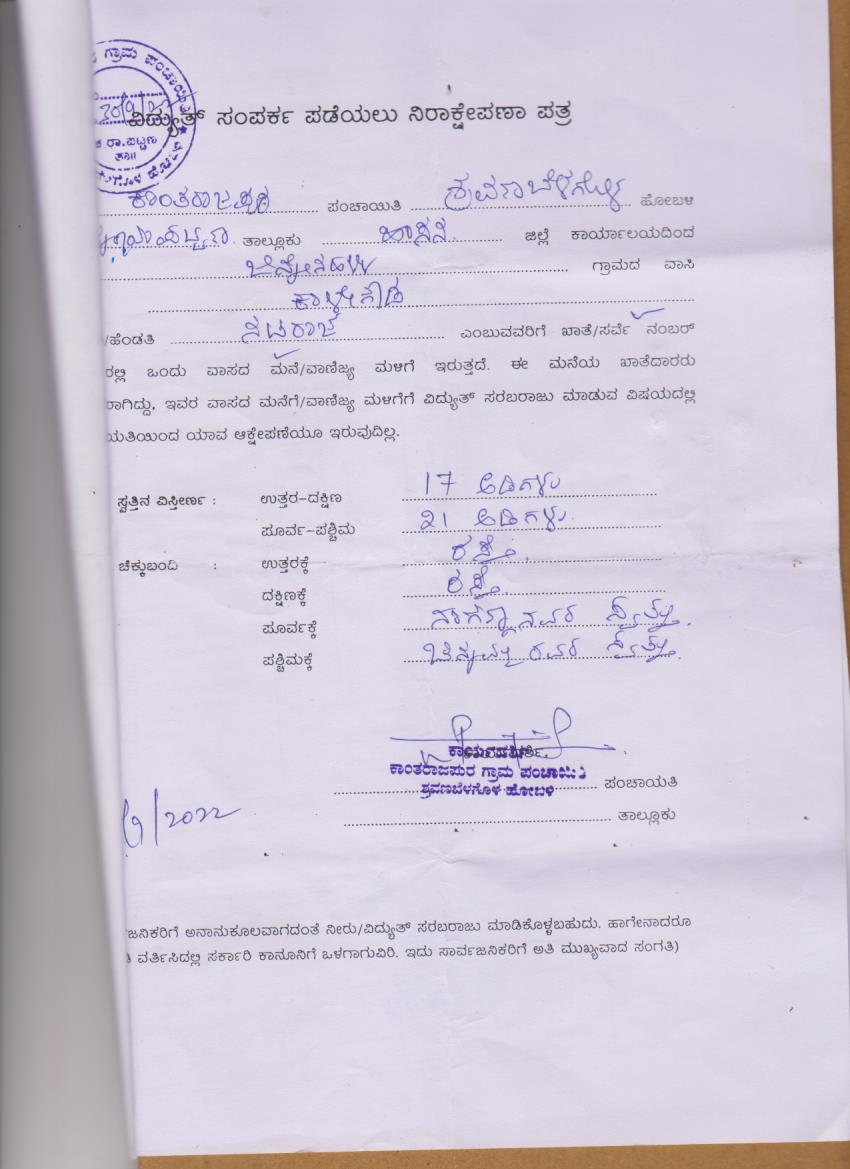 ಗ್ರಾಮ ಪಂಚಾಯಿತಿ
ರಾ.ಪಟ್ಟಣ
ತಾ॥
ವಿದ್ಯುತ್ ಸಂಪರ್ಕ ಪಡೆಯಲು ನಿರಾಕ್ಷೇಪಣಾ ಪತ್ರ
ಕಾಂತರಾಜಪುರ ಪಂಚಾಯಿತಿ ಶ್ರವಣಬೆಳಗೊಳ ಹೋಬಳಿ
ತಾಲ್ಲೂಕು ಹಾಸನ ಜಿಲ್ಲೆ ಕಾರ್ಯಾಲಯದಿಂದ
ಗ್ರಾಮದ ವಾಸಿ
ಕಾಳೇಗೌಡ
/ಹೆಂಡತಿ ನಟರಾಜ ಎಂಬುವವರಿಗೆ ಖಾತೆ/ಸರ್ವೆ ನಂಬರ್
ರಲ್ಲಿ ಒಂದು ವಾಸದ ಮನೆ/ವಾಣಿಜ್ಯ ಮಳಿಗೆ ಇರುತ್ತದೆ. ಈ ಮನೆಯ ಖಾತೆದಾರರು
ರಾಗಿದ್ದು, ಇವರ ವಾಸದ ಮನೆಗೆ/ವಾಣಿಜ್ಯ ಮಳಿಗೆಗೆ ವಿದ್ಯುತ್ ಸರಬರಾಜು ಮಾಡುವ ವಿಷಯದಲ್ಲಿ
ಯತಿಯಿಂದ ಯಾವ ಆಕ್ಷೇಪಣೆಯೂ ಇರುವುದಿಲ್ಲ.
ಸ್ವತ್ತಿನ ವಿಸ್ತೀರ್ಣ : ಉತ್ತರ-ದಕ್ಷಿಣ 17 ಅಡಿಗಳು
ಪೂರ್ವ-ಪಶ್ಚಿಮ 21 ಅಡಿಗಳು
ಚೆಕ್ಕುಬಂದಿ : ಉತ್ತರಕ್ಕೆ ರಸ್ತೆ
ದಕ್ಷಿಣಕ್ಕೆ ರಸ್ತೆ
ಪೂರ್ವಕ್ಕೆ ನಾಗಣ್ಣನವರ ಸ್ವತ್ತು
ಪಶ್ಚಿಮಕ್ಕೆ ರವರ ಸ್ವತ್ತು
ಕಾಂತರಾಜಪುರ ಗ್ರಾಮ ಪಂಚಾಯಿತಿ
ಪಂಚಾಯತಿ
ಶ್ರವಣಬೆಳಗೊಳ ಹೋಬಳಿ
/2022 ತಾಲ್ಲೂಕು
ಜನಿಕರಿಗೆ ಅನಾನುಕೂಲವಾಗದಂತೆ ನೀರು/ವಿದ್ಯುತ್ ಸರಬರಾಜು ಮಾಡಿಕೊಳ್ಳಬಹುದು. ಹಾಗೇನಾದರೂ
ವರ್ತಿಸಿದಲ್ಲಿ ಸರ್ಕಾರಿ ಕಾನೂನಿಗೆ ಒಳಗಾಗುವಿರಿ. ಇದು ಸಾರ್ವಜನಿಕರಿಗೆ ಅತಿ ಮುಖ್ಯವಾದ ಸಂಗತಿ)